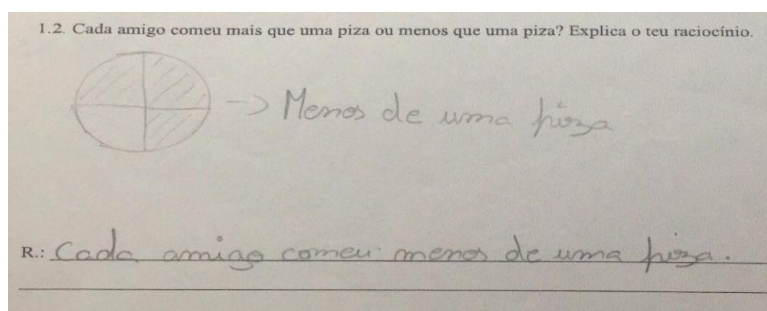 1.2. Cada amigo comeu mais que uma piza ou menos que uma piza? Explica o teu raciocínio.
-> Menos de uma piza
R.: Cada amigo comeu menos de uma piza.